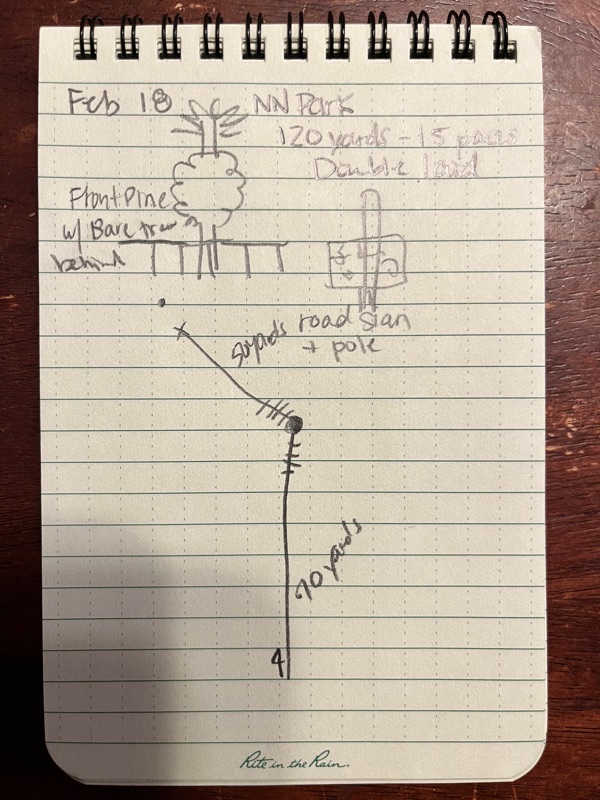 Feb 18 NN Park
120 yards - 15 paces
Double laid
Front Pine
w/ Bare tree
behind
50 yards
road sign
+ pole
70 yards
4
Rite in the Rain